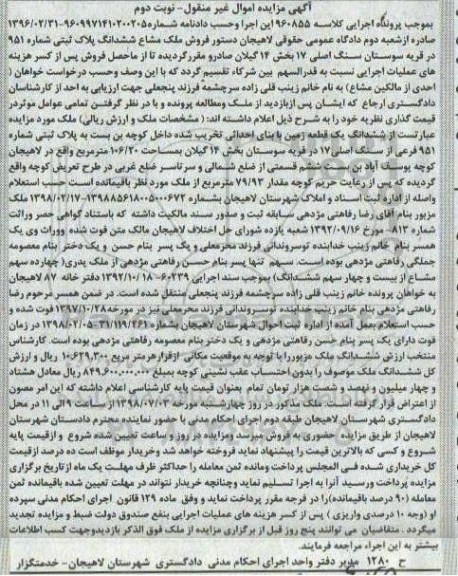 آگهی مزایده اموال غیر منقول- نوبت دوم
بموجب پرونگاه اجرایی کلاسه ۹۶۰۸۵۵ این اجرا وحسب دادنامه شماره ۹۶۰۹۹۷۱۴۱۰۲۰۰۲۰۵-۱۳۹۶/۰۲/۳۱
صادره ازشعبه دوم دادگاه عمومی حقوقی لاهیجان دستور فروش ملک مشاع ششدانگ پلاک ثبتی شماره ۹۵۱
در قریه سوستان سنگ اصلی ۱۷ بخش ۱۴ گیلان صادرو مقررگردیده تا از ماحصل فروش پس از کسر هزینه
های عملیات اجرایی نسبت به قدرالسهم بین شرکاء تقسیم گردد که با این وصف وحسب درخواست خواهان (
احدی از مالکین مشاع) به نام خانم زینب قلی زاده سرچشمه فرزند پنجعلی جهت ارزیابی به احد از کارشناسان
دادگستری ارجاع که ایشان پس ازبازدید از ملک ومطالعه پرونده و با در نظر گرفتن تمامی عوامل موثردر
قیمت گذاری نظریه خود را به شرح ذیل اعلام داشته اند: ( مشخصات ملک و ارزش ریالی) ملک مورد مزایده
عبارتست از ششدانگ یک قطعه زمین با بنای احداثی تخریب شده داخل کوچه بن بست به پلاک ثبتی شماره
۹۵۱ فرعی از سنگ اصلی ۱۷ در قریه سوستان بخش ۱۴ گیلان بمساحت ۱۰۶/۲۰ مترمربع واقع در لاهیجان
کوچه یوسف آباد بن بست ششم قسمتی از ضلع شمالی و سرتاسر ضلع غربی در طرح تعریض کوچه واقع
گردیده که پس از رعایت حریم کوچه مقدار ۷۹/۹۳ مترمربع از ملک مورد نظر باقیمانده است حسب استعلام
واصله از اداره ثبت اسناد و املاک شهرستان لاهیجان بشماره ۱۳۹۸۸۵۶۱۸۰۵۰۰۰۶۷۲-۱۳۹۸/۰۲/۱۷ ملک
مزبور بنام آقای رضا رفاهتی مژدهی سابقه ثبت و صدور سند مالکیت داشته که باستناد گواهی حصر وراثت
شماره ۸۱۳ مورخ ۱۳۹۲/۰۹/۱۶ شعبه یازده شورای حل اختلاف لاهیجان مالک متن فوت شده وورات وی یک
همسر بنام خانم زینب خدابنده توسروندانی فرزند محرمعلی و یک پسر بنام حسن و یک دختر بنام معصومه
جملگی رفاهتی مژدهی بوده است. سهم تنها پسر بنام حسن رفاهتی مژدهی از ملک پدری( چهارده سهم
مشاع از بیست و چهار سهم ششدانگ) بموجب سند اجرایی ۶۰۲۳۹-۱۳۹۲/۱۰/۱۸ دفتر خانه ۸۷ لاهیجان
به خواهان پرونده خانم زینب قلی زاده سرچشمه فرزند پنجعلی منتقل شده است. در ضمن همسر مرحوم رضا
رفاهتی مژدهی بنام خانم زینب خدابنده توسروندانی فرزند محرمعلی نیز در مورخه ۱۳۹۷/۱۰/۲۸ فوت شده و
حسب استعلام بعمل آمده از اداره ثبت احوال شهرستان لاهیجان بشماره ۳۱/۱۱۹/۲۶۱-۱۳۹۸/۰۲/۰۵ در زمان
فوت دارای یک پسر بنام حسن رفاهتی مژدهی و یک دختر بنام معصومه رفاهتی مژدهی بوده است. کارشناس
منتخب ارزش ششدانگ ملک مزبوررا با توجه به موقعیت مکانی ازقرار هرمتر مربع ۱۰,۶۲۹,۳۰۰ ریال و ارزش
کل ششدانگ ملک موصوف را بدون احتساب عقب نشینی کوچه بمبلغ ۸۴۹,۶۰۰,۰۰۰ ریال معادل هشتاد
و چهار میلیون و نهصد و شصت هزار تومان تمام بعنوان قیمت پایه کارشناسی اعلام داشته که این امر مصون
از اعتراض قرار گرفته است. ملک مذکور در روز چهارشنبه مورخه ۱۳۹۸/۰۷/۰۳ از ساعت ۹ الی ۱۱ در محل
دادگستری شهرستان لاهیجان طبقه دوم اجرای احکام مدنی با حضور نماینده محترم دادستان شهرستان
لاهیجان از طریق مزایده حضوری به فروش میرسد. مزایده در روز و ساعت تعیین شده شروع و ازقیمت پایه
شروع و کسی که بالاترین قیمت را پیشنهاد نماید فروخته خواهد شد وخریدار موظف است ده درصد ازقیمت
کل خریداری شده فی المجلس پرداخت ومانده ثمن معامله را حداکثر ظرف مهلت یک ماه از تاریخ برگزاری
مزایده پرداخت ورسید آنرا به اجرا تسلیم نماید وچنانچه خریدار نتواند در مهلت تعیین شده باقیمانده ثمن
معامله (۹۰ درصد باقیمانده) را در فرجه مقرر پرداخت نماید و وفق ماده ۱۲۹ قانون اجرای احکام مدنی سپرده
او (وجه ۱۰ درصدی واریزی ) پس از کسر هزینه های عملیات اجرایی بنفع صندوق دولت ضبط و مزایده تجدید
میگردد . متقاضیان می توانند پنج روز قبل از برگزاری مزایده از ملک فوق الذکر بازدیدوجهت کسب اطلاعات
بیشتر به این اجراء مراجعه فرمایند.
ح ۱۲۸۰ مدیر دفتر واحد اجرای احکام مدنی دادگستری شهرستان لاهیجان- خدمتگزار